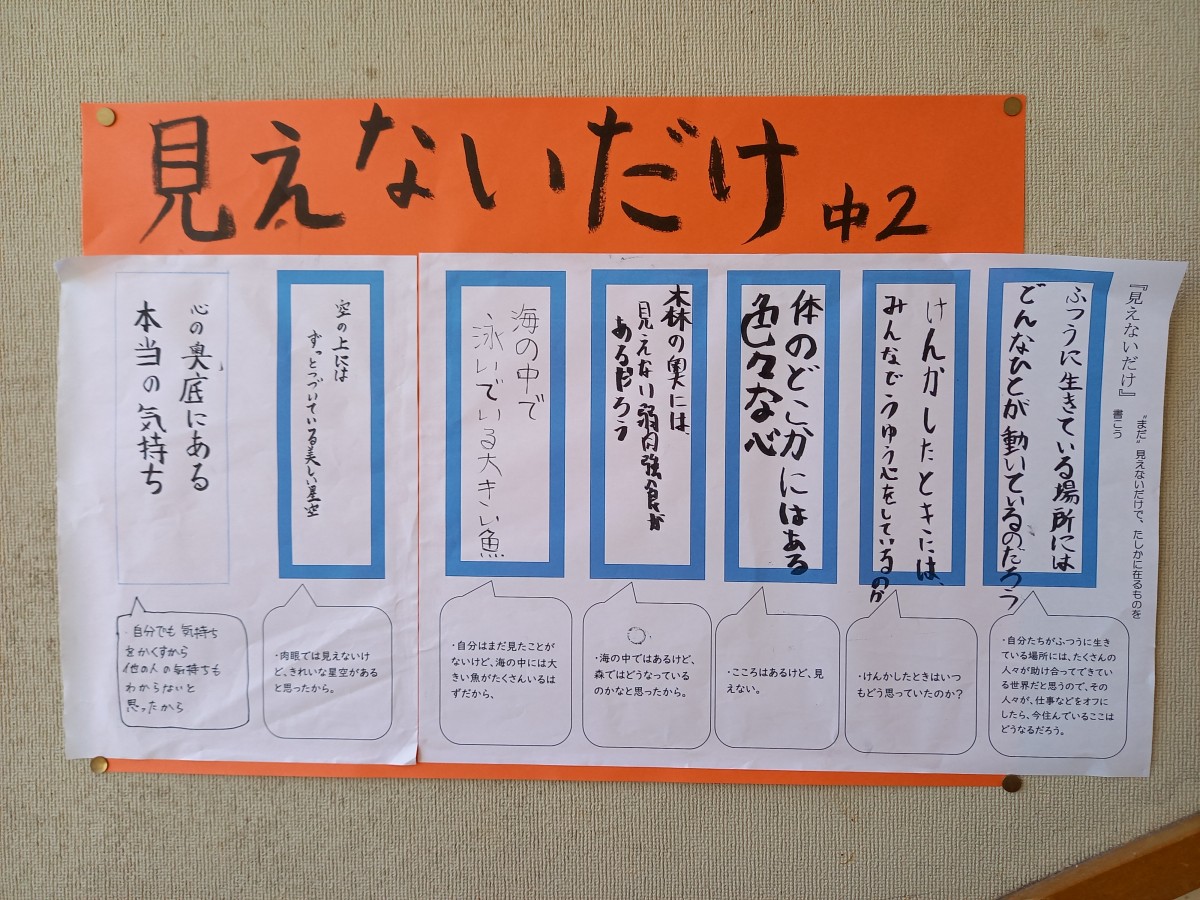 見えないだけ 中2
『見えないだけ』
"まだ"見えないだけで、たしかに在るものを
書こう
ふつうに生きている場所には
どんなひとが動いているのだろう
・自分たちがふつうに生き
ている場所には、たくさんの
人々が助け合ってできてい
る世界だと思うので、その
人々が、仕事などをオフに
したら、今住んでいるここは
どうなるだろう。
けんかしたときには、
みんなどうゆう心をしているのか
・けんかしたときはいつ
もどう思っていたのか?
体のどこかにはある
色々な心
・こころはあるけど、見
えない。
森の奥には、
見えない弱肉強食が
あるだろう
・海の中ではあるけど、
森ではどうなっている
のかなと思ったから。
海の中で
泳いでいる大きい魚
・自分はまだ見たことが
ないけど、海の中には大
きい魚がたくさんいるは
ずだから、
空の上には
ずっとつづいている美しい星空
・肉眼では見えないけ
ど、きれいな星空がある
と思ったから。
心の奥底にある
本当の気持ち
・自分でも気持ち
をかくすから
他の人の気持ちも
わからないと
思ったから